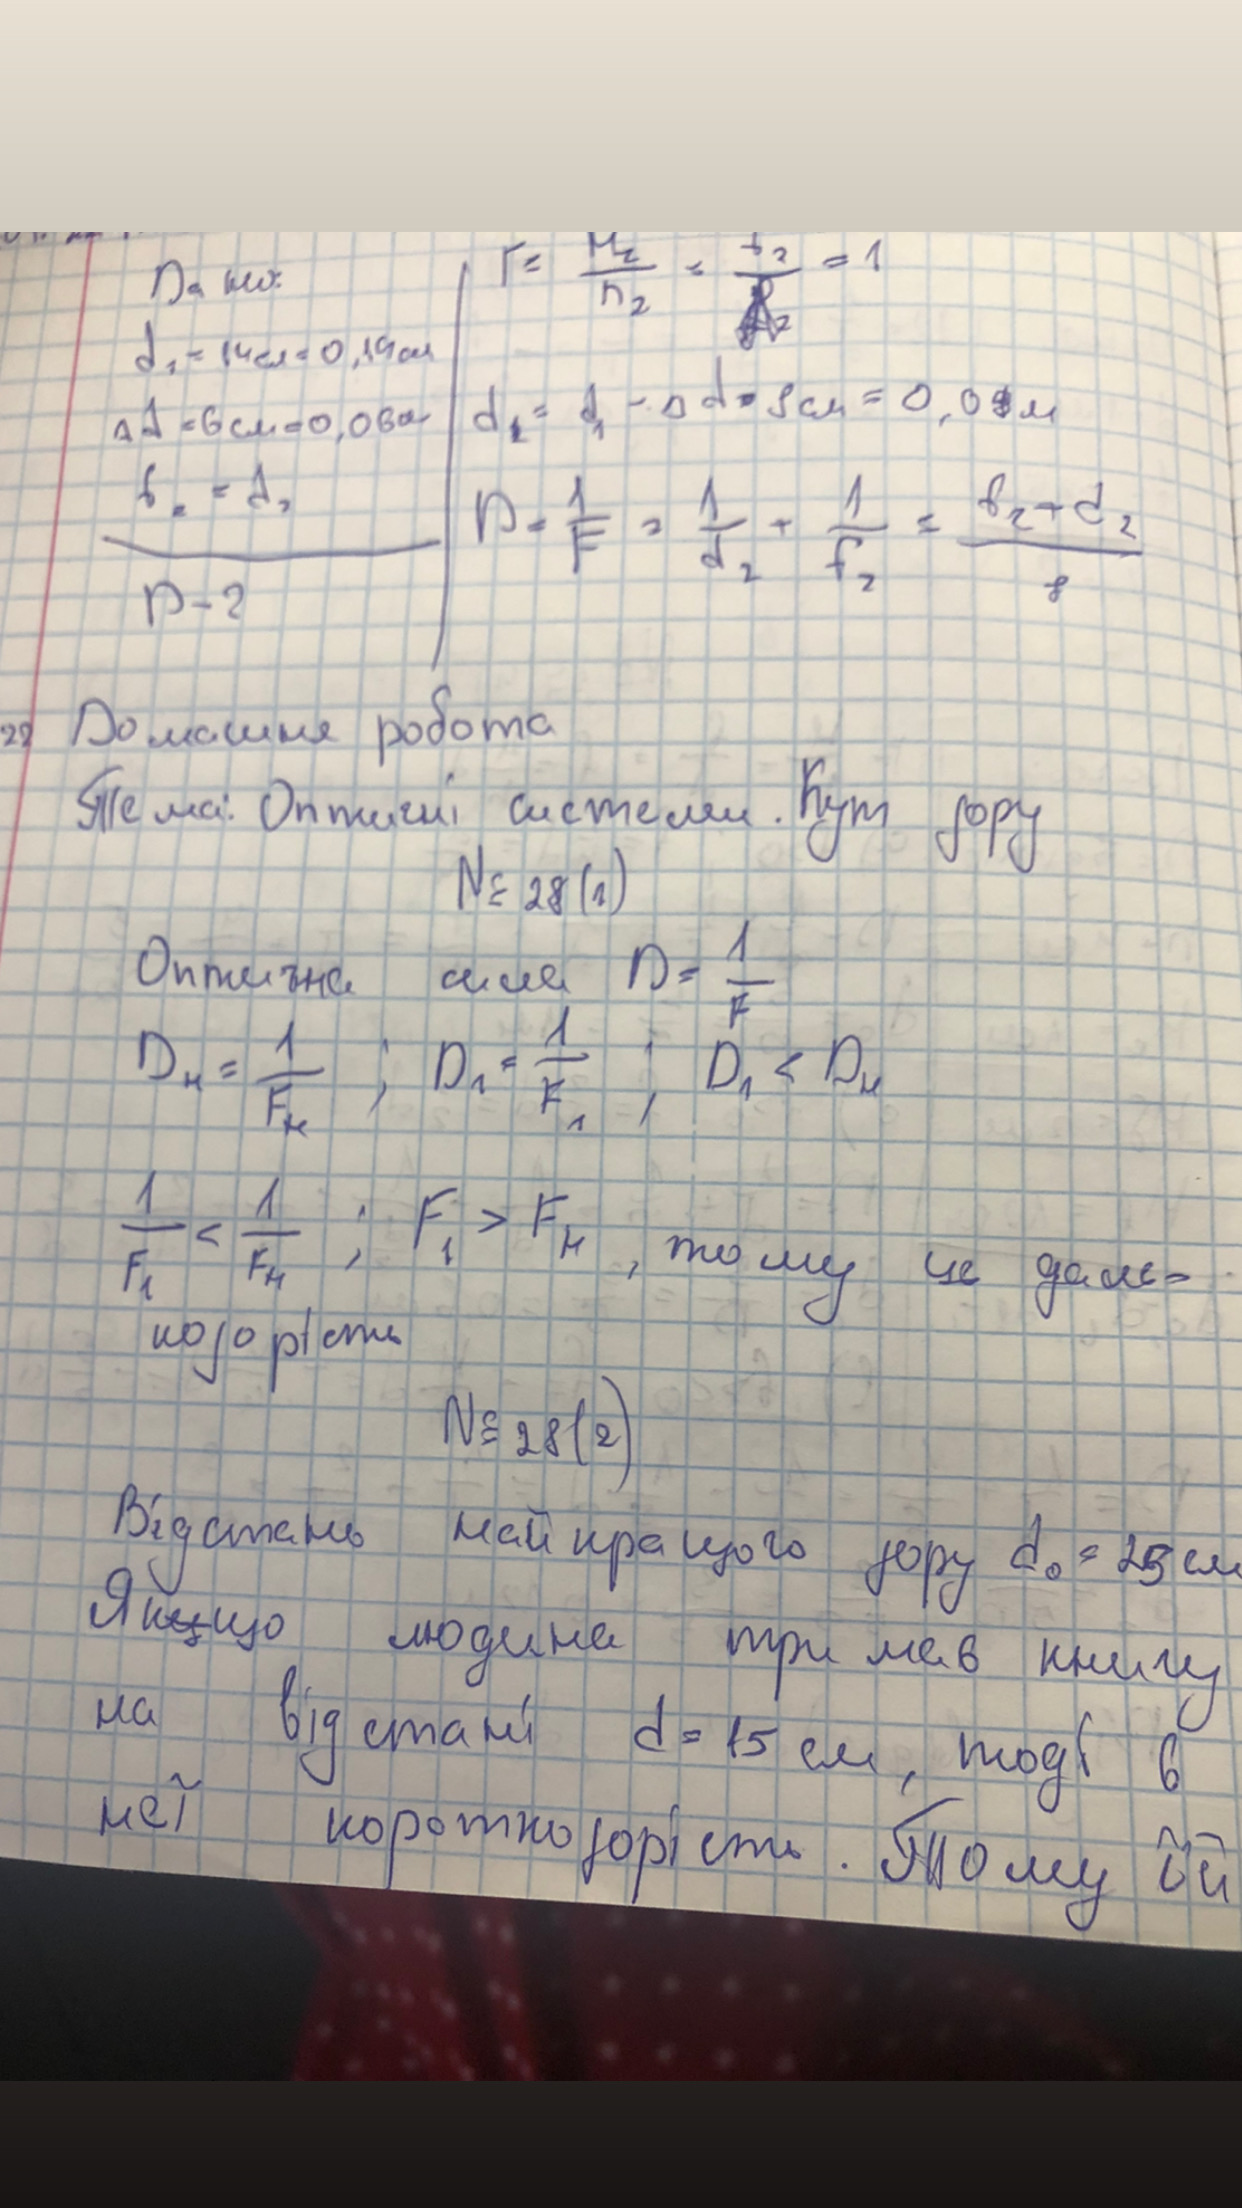 Дано:
Г = H₂/h₂ = f₂/d₂ = 1
d₁ = 14см = 0,14см
Δd = 6см = 0,06м
d₂ = d₁ - Δd = 8см = 0,08м
f₂ = d₂
D = 1/F = 1/d₂ + 1/f₂ = f₂+d₂/8
D - ?
22 Домашня робота
Тема: Оптичні системи. Кут зору
№ 28(1)
Оптична сила D = 1/F
Dн = 1/Fн ; D₁ = 1/F₁ ; D₁ < Dн
1/F₁ < 1/Fн ; F₁ > Fн , тому це дале-
козорість
№ 28(2)
Відстань найкращого зору d₀ = 25 см
Якщо людина тримає книгу
на відстані d = 15 см, тоді в
неї короткозорість. Тому їй